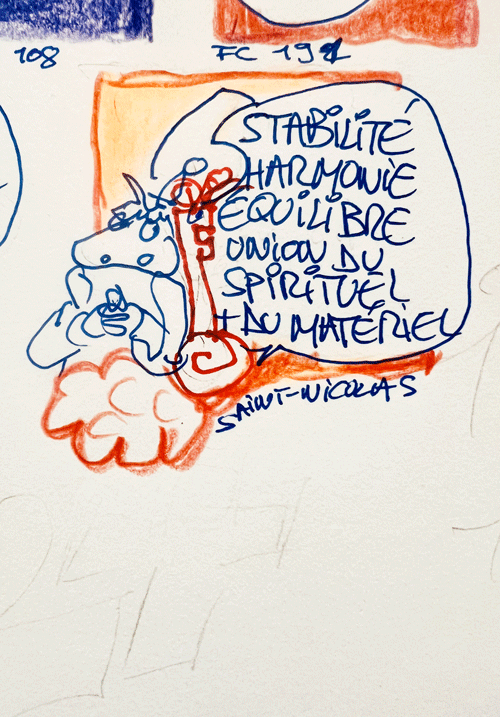 108
FC 191
STABILITÉ
HARMONIE
ÉQUILIBRE
UNION DU
SPIRITUEL
+ DU MATÉRIEL
SAINT-NICOLAS